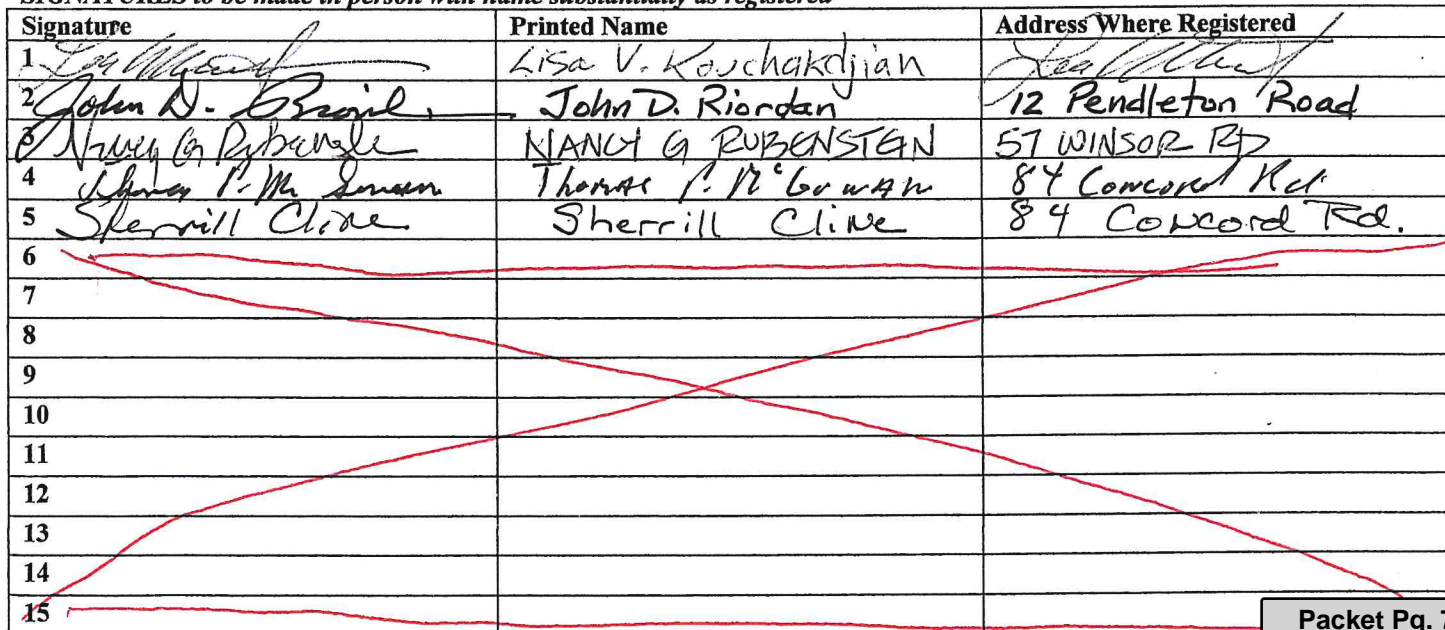 SIGNATURES to be made in person with name substantially as registered
Signature Printed Name Address Where Registered
1 Lisa V. Kouchakdjian
2 John D. Riordan 12 Pendleton Road
3 NANCY G RUBENSTEIN 57 WINSOR RD
4 Thomas P. 84 Concord Rd
5 Sherrill Cline Sherrill Cline 84 Concord Rd.
6
7
8
9
10
11
12
13
14
15
Packet Pg. 7